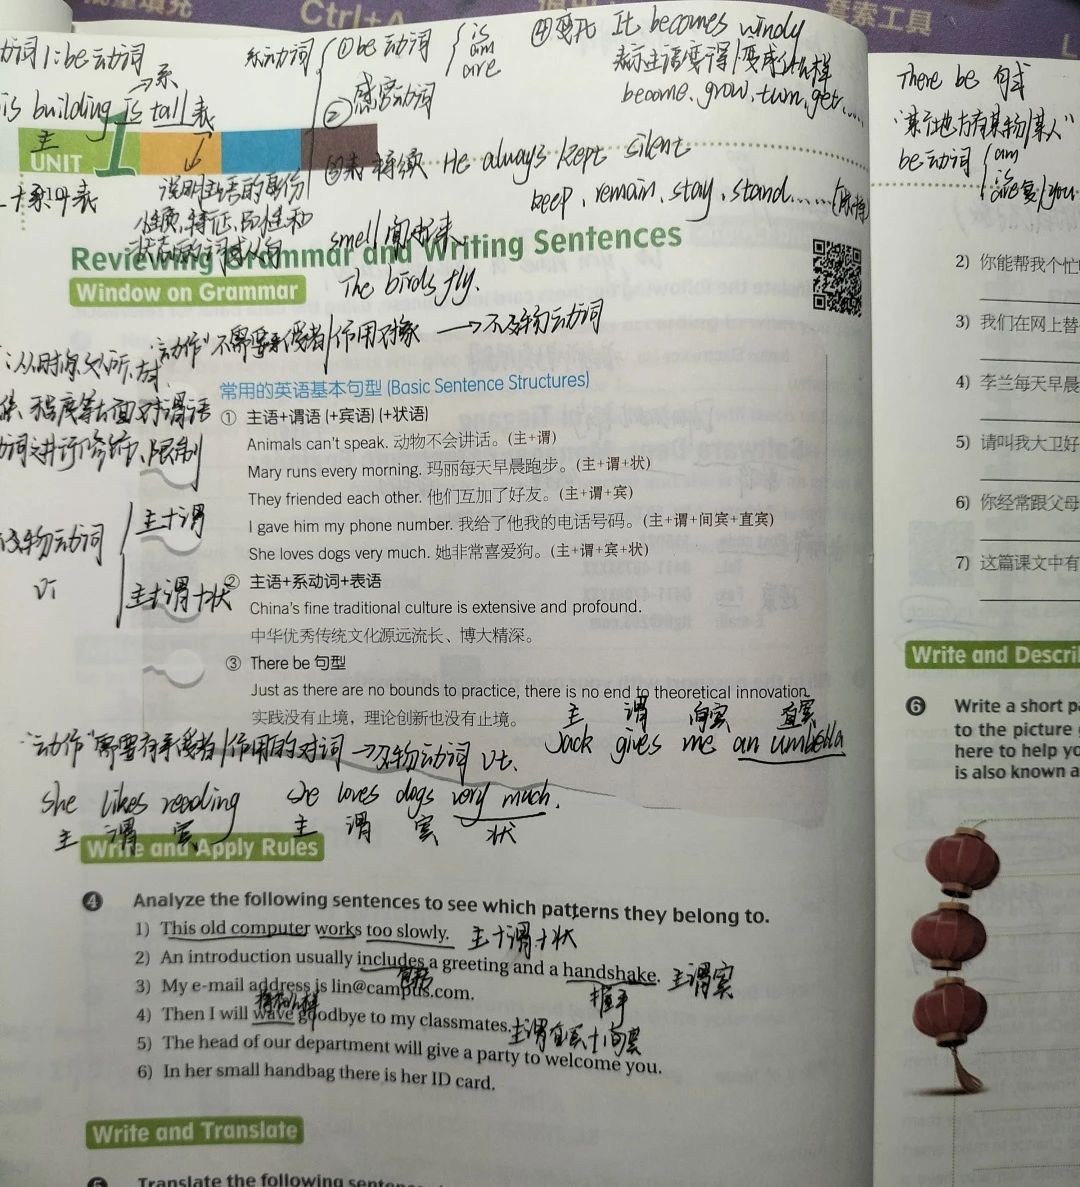 批量填充
Ctrl+A
套索工具
动词1:be动词
→系
系动词
①be 动词
is
am
are
②感官动词
④变化 It becomes windy
表示主语变得/变成什么样
become、grow、turn、get……
is building is tall 表
主
UNIT 1
③表持续 He always kept silent
keep、remain、stay、stand……
主+系+表
说明主语的身份
性质、特征、品性和
状态的词或从句
smell 闻起来
Reviewing Grammar and Writing Sentences
Window on Grammar
The birds fly.
"动作"不需要承受者/作用对象 →不及物动词
程度等方面对谓语
动词进行修饰、限制
常用的英语基本句型 (Basic Sentence Structures)
① 主语+谓语 (+宾语) (+状语)
Animals can't speak. 动物不会讲话。(主+谓)
Mary runs every morning. 玛丽每天早晨跑步。(主+谓+状)
They friended each other. 他们互加了好友。(主+谓+宾)
I gave him my phone number. 我给了他我的电话号码。(主+谓+间宾+直宾)
She loves dogs very much. 她非常喜爱狗。(主+谓+宾+状)
及物动词
vi
主+谓
主+谓+状
② 主语+系动词+表语
China's fine traditional culture is extensive and profound.
中华优秀传统文化源远流长、博大精深。
③ There be 句型
Just as there are no bounds to practice, there is no end to theoretical innovation.
实践没有止境，理论创新也没有止境。
主 谓 间宾 直宾
Jack gives me an umbrella
"动作"需要有承受者/作用的对词 →及物动词 vt.
She likes reading
主 谓 宾
She loves dogs very much.
主 谓 宾 状
Write and Apply Rules
4 Analyze the following sentences to see which patterns they belong to.
1) This old computer works too slowly. 主+谓+状
2) An introduction usually includes a greeting and a handshake. 主谓宾
包括
握手
3) My e-mail address is lin@campus.com.
4) Then I will wave goodbye to my classmates. 主谓直宾+间宾
5) The head of our department will give a party to welcome you.
6) In her small handbag there is her ID card.
Write and Translate
5 Translate the following sentences
There be 句式
"某地方有某物/某人"
be动词
am
is
are
2) 你能帮我个忙
3) 我们在网上替
4) 李兰每天早晨
5) 请叫我大卫好
6) 你经常跟父母
7) 这篇课文中有
Write and Descri
6 Write a short p
to the picture
here to help yo
is also known a